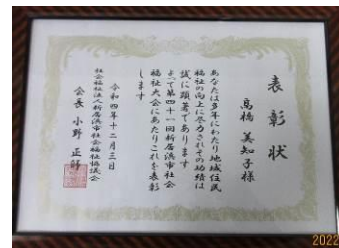 表彰状
高橋 美知子様
あなたは多年にわたり地域住民
福祉の向上に尽力されその功績は
誠に顕著であります
よって第四十一回新居浜市社会
福祉大会にあたりこれを表彰
します
令和四年十二月三日
社会福祉法人新居浜市社会福祉協議会
会長 小野 正師
2022